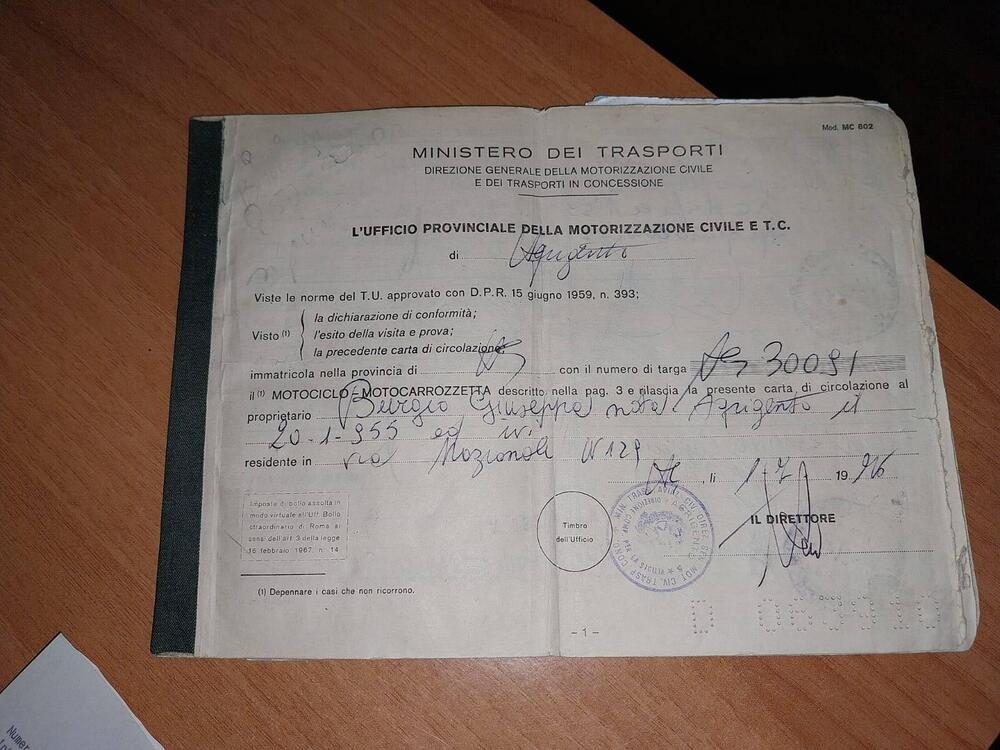 Mod. MC 802
MINISTERO DEI TRASPORTI
DIREZIONE GENERALE DELLA MOTORIZZAZIONE CIVILE
E DEI TRASPORTI IN CONCESSIONE
L'UFFICIO PROVINCIALE DELLA MOTORIZZAZIONE CIVILE E T.C.
di Agrigento
Viste le norme del T.U. approvato con D.P.R. 15 giugno 1959, n. 393;
la dichiarazione di conformità;
Visto (1) l'esito della visita e prova;
la precedente carta di circolazione
immatricola nella provincia di AG con il numero di targa AG 30091
il (1) MOTOCICLO-MOTOCARROZZETTA descritto nella pag. 3 e rilascia la presente carta di circolazione al
proprietario Burgio Giuseppa nata Agrigento il
20-1-955 ed ivi
residente in via Nazionale N 129
AG, lì 1 7 19 76
Imposta di bollo assolta in
modo virtuale all'Uff. Bollo
straordinario di Roma ai
sensi dell'art. 3 della legge
16 febbraio 1967, n. 14
Timbro
dell'Ufficio
IL DIRETTORE
(1) Depennare i casi che non ricorrono.
– 1 –
Numer